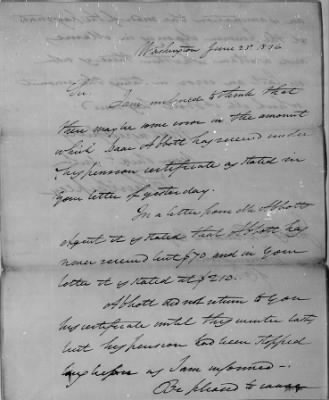 Washington June 25. 1836
Sir.
I am inclined to think that
there may be some error in the amount
which Isaac Abbott has received under
his pension certificate as stated in
your letter of yesterday.
In a letter from Mr Abbott
agent it is stated that Abbott has
never received but $70 and in your
letter it is stated at $210.
Abbott did not return to you
his certificate until this winter last
but his pension had been stopped
long before as I am informed—.
Be pleased to cause